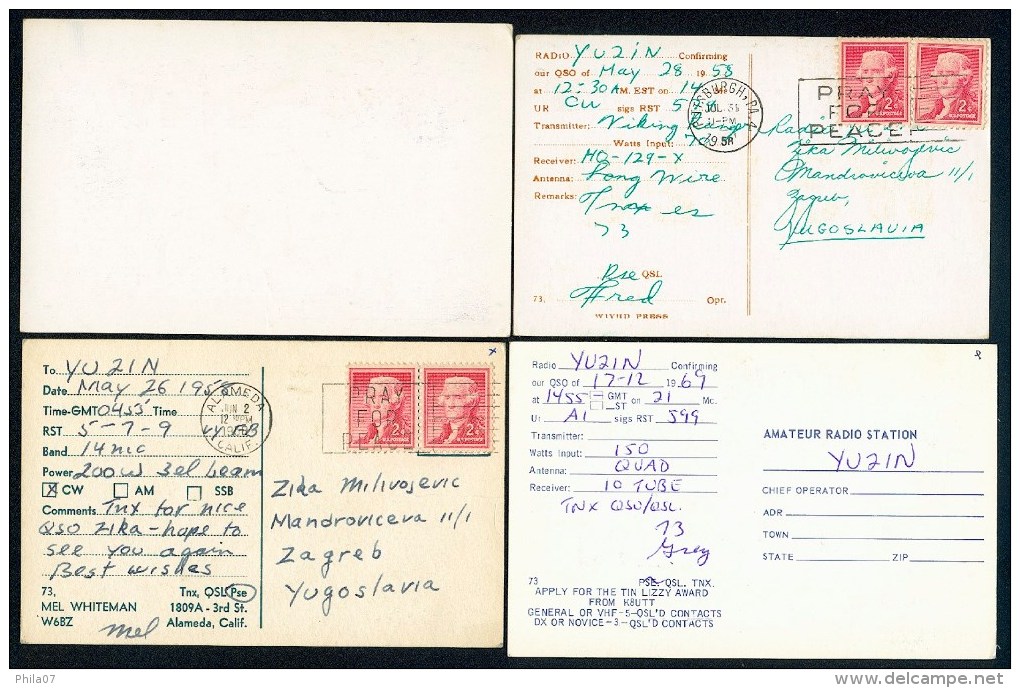 RADIO YU2IN Confirming
our QSO of May 28 1958
at 12-30A M. EST on 14 Mc
UR CW sigs RST
Transmitter: Viking Ranger
Watts Input:
Receiver: HQ-129-X
Antenna: Long Wire
Remarks: Tnx es
73
Pse QSL
73, Fred Opr.
W1YHD PRESS
PA.
JUL 31
-PM
1958
PRAY
FOR
PEACE
2¢
2¢
Radio
Zika Milivojevic
Mandroviceva 11/1
Zagreb,
YUGOSLAVIA
To YU2IN
Date May 26 1958
Time-GMT 0455 Time
RST 5-7-9 vy FB
Band 14mc
Power 200W 3el beam
X CW AM SSB
Comments Tnx for nice
QSO Zika-hope to
see you again
Best wishes
73, Tnx, QSL Pse
MEL WHITEMAN 1809A - 3rd St.
W6BZ Mel Alameda, Calif.
ALAMEDA
JUN 2
CALIF.
PRAY
FOR
2¢
2¢
Zika Milivosevic
Mandroviceva 11/1
Zagreb
Yugoslavia
Radio YU2IN Confirming
our QSO of 17-12 1969
at 1455 GMT on 21 Mc.
ST
Ur A1 sigs RST 599
Transmitter:
Watts Input: 150
Antenna: QUAD
Receiver: 10 TUBE
TNX QSO/QSL.
73
Greg
73 PSE. QSL. TNX.
APPLY FOR THE TIN LIZZY AWARD
FROM K8UTT
GENERAL OR VHF-5-QSL'D CONTACTS
DX OR NOVICE-3-QSL'D CONTACTS
AMATEUR RADIO STATION
YU2IN
CHIEF OPERATOR
ADR
TOWN
STATE ZIP
Phila07
delcampe.net